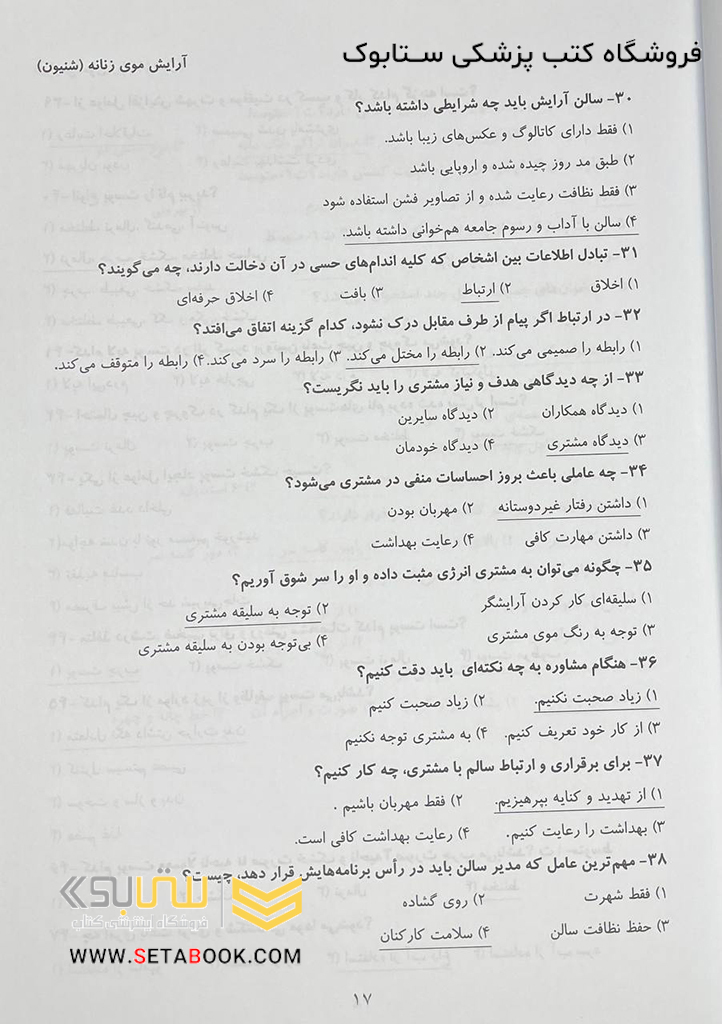 فروشگاه کتب پزشکی ستابوک
آرایش موی زنانه (شنیون)
۳۰- سالن آرایش باید چه شرایطی داشته باشد؟
۱) فقط دارای کاتالوگ و عکس‌های زیبا باشد.
۲) طبق مد روز چیده شده و اروپایی باشد
۳) فقط نظافت رعایت شده و از تصاویر فشن استفاده شود
۴) سالن با آداب و رسوم جامعه هم‌خوانی داشته باشد.
۳۱- تبادل اطلاعات بین اشخاص که کلیه اندام‌های حسی در آن دخالت دارند، چه می‌گویند؟
۱) اخلاق ۲) ارتباط ۳) بافت ۴) اخلاق حرفه‌ای
۳۲- در ارتباط اگر پیام از طرف مقابل درک نشود، کدام گزینه اتفاق می‌افتد؟
۱) رابطه را صمیمی می‌کند. ۲) رابطه را مختل می‌کند. ۳) رابطه را سرد می‌کند. ۴) رابطه را متوقف می‌کند.
۳۳- از چه دیدگاهی هدف و نیاز مشتری را باید نگریست؟
۱) دیدگاه همکاران ۲) دیدگاه سایرین
۳) دیدگاه مشتری ۴) دیدگاه خودمان
۳۴- چه عاملی باعث بروز احساسات منفی در مشتری می‌شود؟
۱) داشتن رفتار غیردوستانه ۲) مهربان بودن
۳) داشتن مهارت کافی ۴) رعایت بهداشت
۳۵- چگونه می‌توان به مشتری انرژی مثبت داده و او را سر شوق آوریم؟
۱) سلیقه‌ای کار کردن آرایشگر ۲) توجه به سلیقه مشتری
۳) توجه به رنگ موی مشتری ۴) بی‌توجه بودن به سلیقه مشتری
۳۶- هنگام مشاوره به چه نکته‌ای باید دقت کنیم؟
۱) زیاد صحبت نکنیم. ۲) زیاد صحبت کنیم
۳) از کار خود تعریف کنیم. ۴) به مشتری توجه نکنیم
۳۷- برای برقراری و ارتباط سالم با مشتری، چه کار کنیم؟
۱) از تهدید و کنایه بپرهیزیم. ۲) فقط مهربان باشیم .
۳) بهداشت را رعایت کنیم. ۴) رعایت بهداشت کافی است.
۳۸- مهم‌ترین عامل که مدیر سالن باید در رأس برنامه‌هایش قرار دهد، چیست؟
۱) فقط شهرت ۲) روی گشاده
۳) حفظ نظافت سالن ۴) سلامت کارکنان
ستابوک
فروشگاه اینترنتی کتاب
WWW.SETABOOK.COM
۱۷